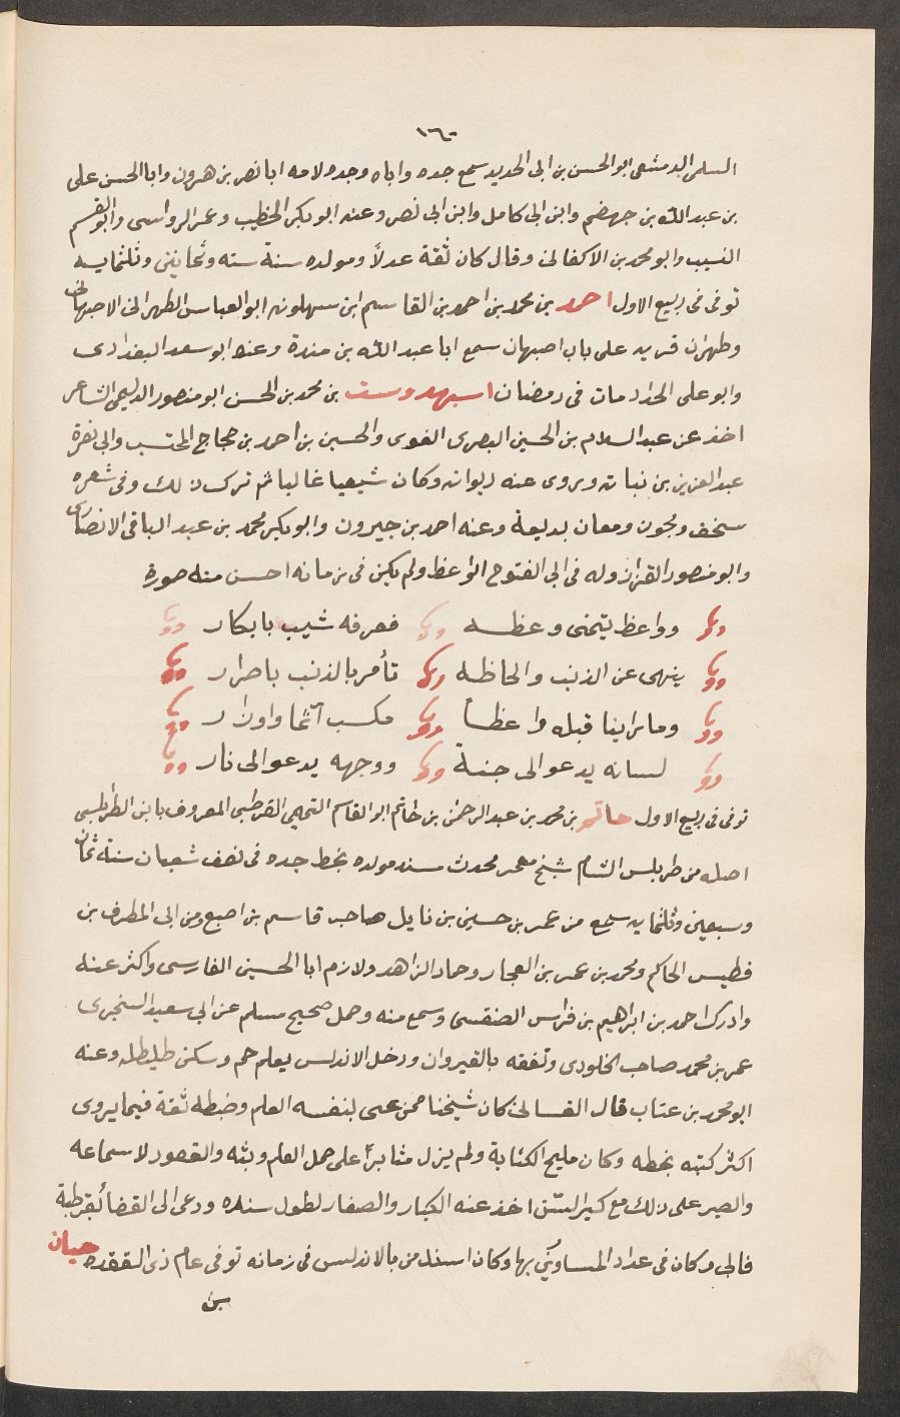 ١٦٠
السلمى الدمشقى ابو الحسن بن ابى الحديد سمع جده واباه وجده لامه ابا نصر بن هرون وابا الحسن على
بن عبد الله بن جهضم وابن ابى كامل وابن ابى نصر وعنه ابو بكر الخطيب وعمر الرواسى وابو القسم
النسيب وابو محمد بن الاكفانى وقال كان ثقة عدلاً ومولده سنة سته وثمانين وثلثمايه
توفى فى ربيع الاول احمد بن محمد بن احمد بن القاسم ابن سهلويه ابو العباس الطهرانى الاصبهانى
وطهران قريه على باب اصبهان سمع ابا عبد الله بن مندة وعنه ابو سعد البغدادى
وابو على الحداد مات فى رمضان اسبهدوست بن محمد بن الحسن ابو منصور الديلمى الشاعر
اخذ عن عبد السلام بن الحسين البصرى اللغوى والحسين بن احمد بن حجاج المحتسب وابى نصرة
عبد العزيز بن نباته وروى عنه ديوانه وكان شيعيا غاليا ثم ترك ذلك وفى شعره
سخف ومجون ومعان بديعة وعنه احمد بن جيرون وابو بكر محمد بن عبد الباقى الانصارى
وابو منصور القزاز وله فى ابى الفتوح الواعظ ولم يكن فى زمانه احسن منه صورة
وواعظ يتمنى وعظه فعرفه شيب بابكار
ينهى عن الذنب والحاظه تأمر بالذنب باصرار
وما راينا قبله واعظاً مكسب آثما واوزار
لسانه يدعو الى جنة ووجهه يدعو الى نار
توفى فى ربيع الاول حاتم بن محمد بن عبد الرحمن بن حاتم ابو القاسم التميمى القرطبى المعروف بابن الطرابلسى
اصله من طربلس الشام شيخ معمر محدث سند مولده بخط جده فى نصف شعبان سنة ثمان
وسبعين وثلثمايه سمع من عمر بن حسين بن نايل صاحب قاسم بن اصبع ومن ابى المطرف بن
فطيس الحاكم ومحمد بن عمر بن الفجار وحماد الزاهد ولازم ابا الحسين الفارسى واكثر عنه
وادرك احمد بن ابراهيم بن فراس الصقسى وسمع منه وحمل صحيح مسلم عن ابى سعيد السنجرى
عمر بن محمد صاحب الجلودى وتفقه بالقيروان ودخل الاندلس يعلم جم وسكن طليطله وعنه
ابو محمد بن عتاب قال الغسانى كان شيخنا ممن عنى لنفسه العلم وضبطه ثقة فيما يروى
اكثر كتبه بخطه وكان مليح الكتابة ولم يزل مثابرا على حمل العلم وبثه والقعود لاسماعه
والصبر على ذلك مع كبر السن اخذ عنه الكبار والصغار لطول سنده ودعى الى القضا بقرطبة
فابى وكان فى عداد المساوين بها وكان اسند من بالاندلس فى زمانه توفى عام ذى القعده حيان
بن